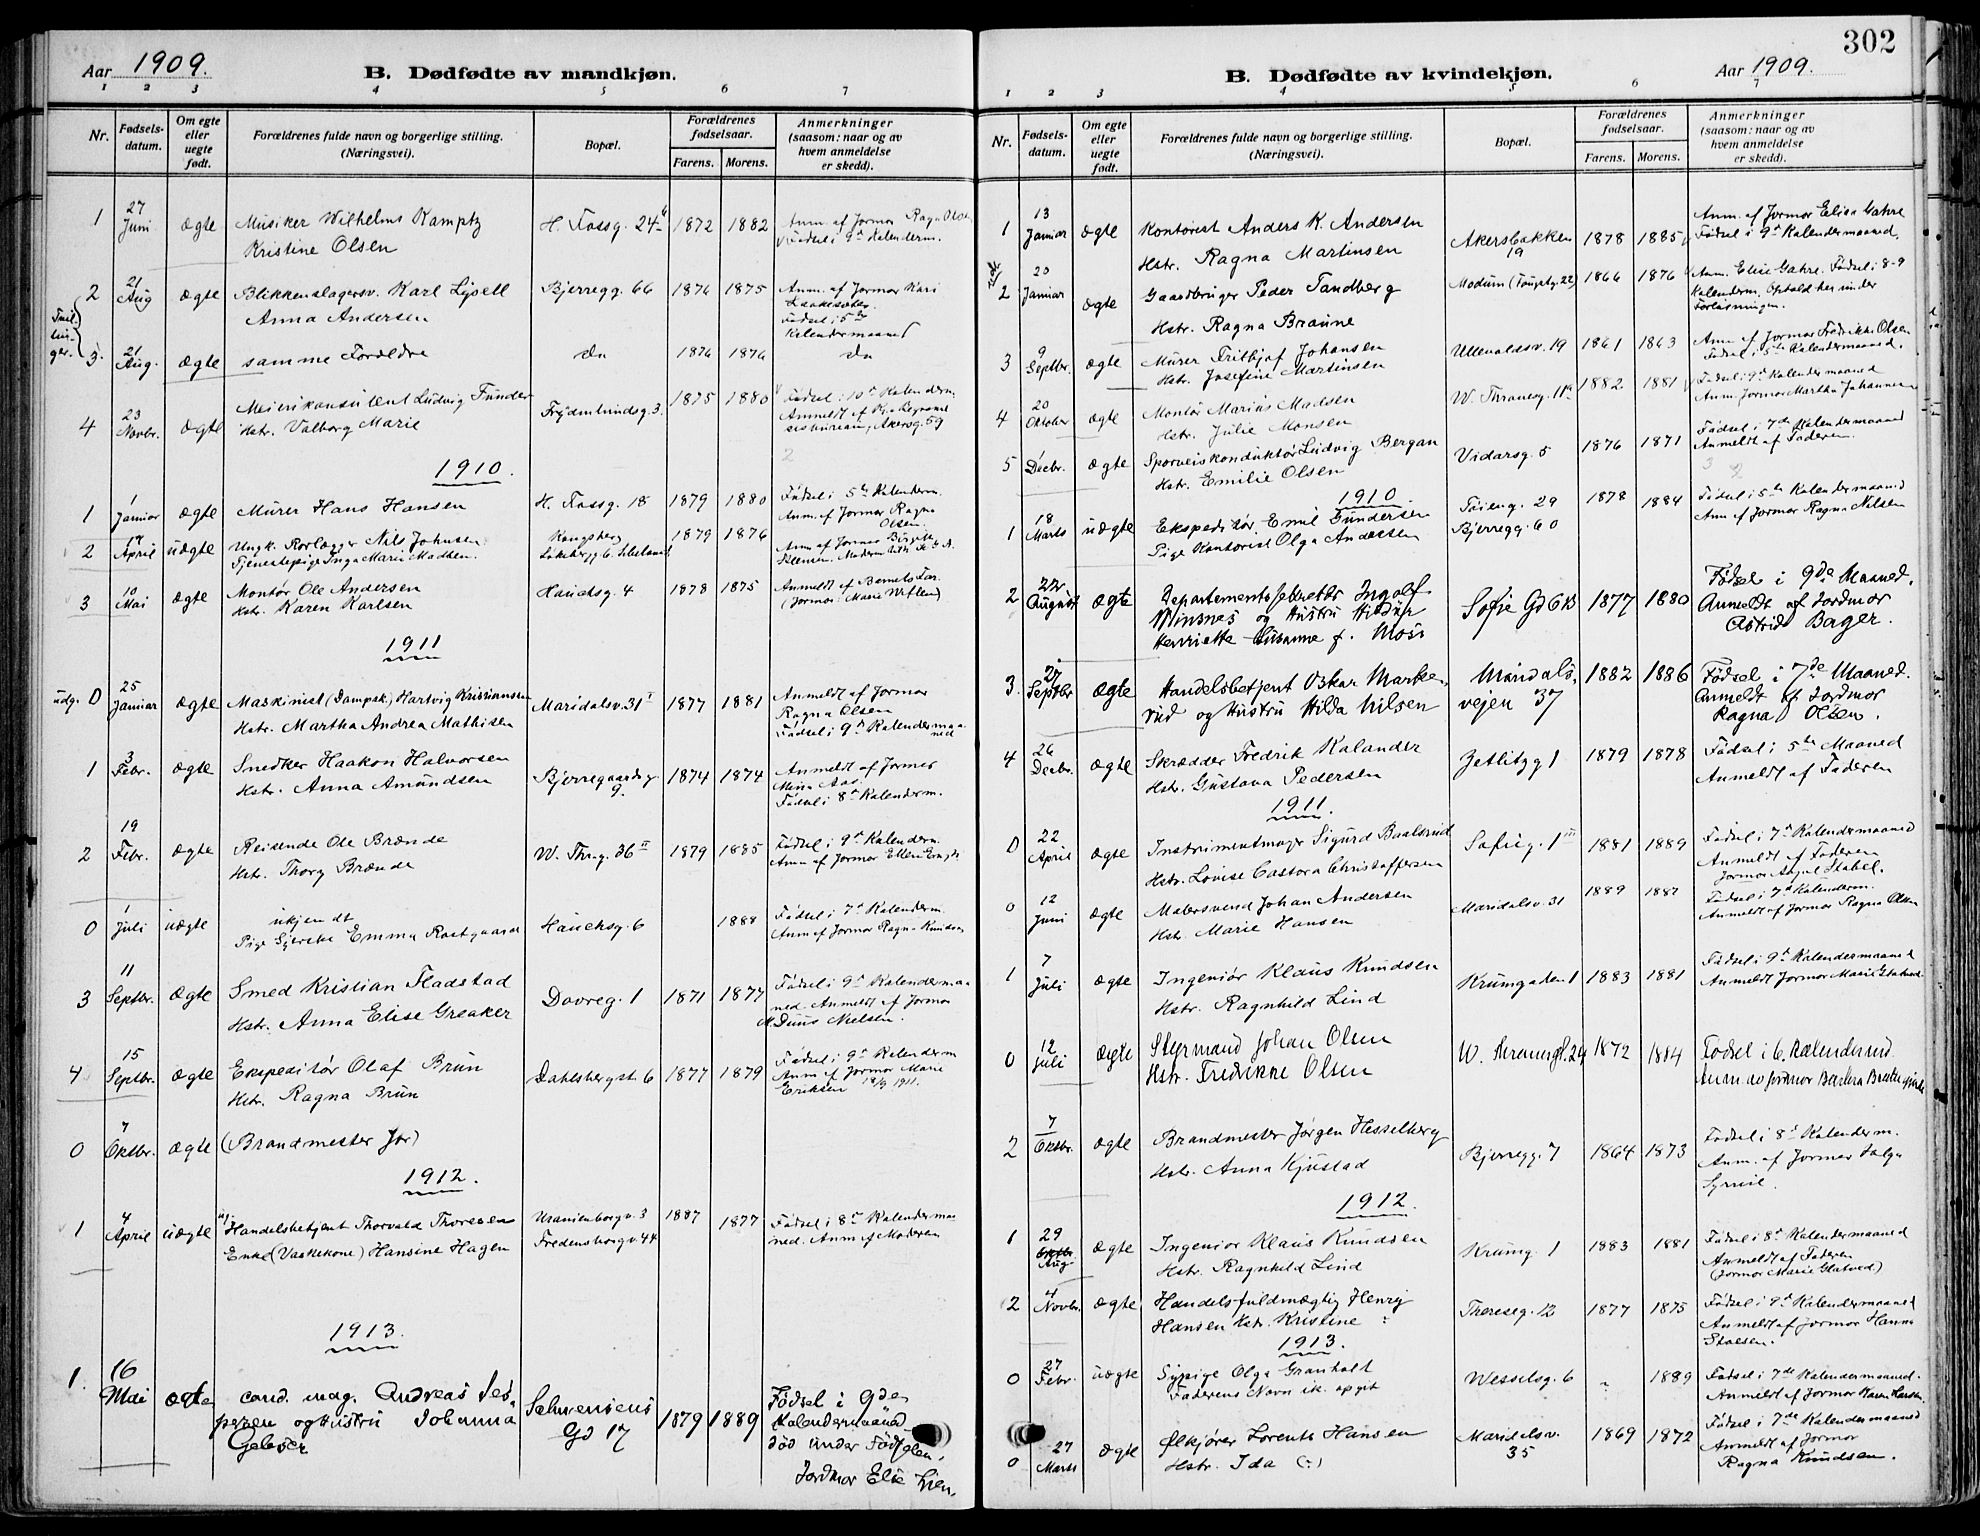 302
Aar 1909.
B. Dødfødte av mandkjøn.
1 2 3 4 5 6 7
Nr.
Fødsels-
datum.
Om egte
eller
uegte
født.
Forældrenes fulde navn og borgerlige stilling.
(Næringsvei).
Bopæl.
Forældrenes
fødselsaar.
Farens. Morens.
Anmerkninger
(saasom: naar og av
hvem anmeldelse
er skedd).
1 27 Juni ægte Musiker Wilhelms Kamptz H. Fossg. 24 1872 1882 Anm. af Jormor Ragna Olsen
Kristine Olsen Fødsel i 9d Kalenderm.
Tvil-
lin-
ger.
2 21 Aug ægte Blikkenslagersv. Karl Lysell Bjerregg. 66 1876 1875 Anm. af Jormor Kari
Anna Andersen
Fødsel i 5te
Kalendermaaned
3 21 Aug. ægte samme Foreldre do 1876 1876 do
4 23 Novbr. ægte Meierikonsulent Ludvig Funder Frydenlundsg. 3. 1875 1880 Fødsel i 10d Kalenderm.
Hstr. Valborg Marie Anmeldt af
Akersg. 59
1910.
1 1 Januar ægte Murer Hans Hansen H. Fossg. 18 1879 1880 Fødsel i 5te Kalenderm.
Anm. af Jormor Ragna
Olsen.
2 14 April uægte Ungk. Rørlægger Nils Johnsen Kongsberg 1879 1876
Tjenestepige Inga Marie Madsen.
3 10 Mai ægte Montør Ole Andersen Hauchsg. 4 1878 1875 Anmeldt af Barnets Far.
Hstr. Karen Karlsen
1911
udg. 0 25 Januar ægte Maskinist (Dampsk.) Hartvig Kristiansen Maridalsv. 31 I 1877 1881 Anmeldt af Jormor
Hstr. Martha Andrea Mathisen Ragna Olsen
Fødsel i 9d Kalendermaa-
ned
1 3 Febr. ægte Snedker Haakon Halvorsen Bjerregaardsg 9. 1874 1874 Anmeldt af Jormor
Hstr. Anna Amundsen Mina Aas
Fødsel i 8d Kalenderm.
2 19 Febr. ægte Reisende Ole Brænde W. Thrg. 36 II 1879 1885 Fødsel i 9d Kalenderm.
Hstr. Thory Brænde Anm af Jormor Ellen
0 1 Juli uægte ukjendt Hauchsg. 6 1888 Fødsel i 7d Kalenderm.
Pige Syerske Emma Rostgaard Anm af Jormor Ragna Knudsen
3 11 Septbr. ægte Smed Kristian Fladstad Dovreg. 1 1871 1877 Fødsel i 9d Kalendermaa-
Hstr. Anna Elise Greaker ned. Anmeldt af Jormor
M. Duus Nielsen.
4 15 Septbr. ægte Ekspeditør Olaf Brun Dahlsbergst. 6 1877 1879 Fødsel i 9d Kalenderm
Hstr. Ragna Brun Anm af Jormor Marie
Eriksen 18/9 1911.
0 7 Oktbr. ægte (Brandmester Jør)
1912.
1 4 April uægte Handelsbetjent Thorvald Thoresen Uranienborgv. 3 1887 1877 Fødsel i 8d Kalendermaa
Enke (Vaskekone) Hansine Hagen Fredensborgv. 44 ned. Anm af Moderen
1913.
1. 16 Mai ægte cand. mag. Andreas Jes- Schwensens Gd 17 1879 1889 Fødsel i 9de
persen og Hustru Johanna Kalendermaaned
Gebser død under Fødslen,
Jordmor Elise Lien.
Aar 1909.
B. Dødfødte av kvindekjøn.
1 2 3 4 5 6 7
Nr.
Fødsels-
datum.
Om egte
eller
uegte
født.
Forældrenes fulde navn og borgerlige stilling.
(Næringsvei).
Bopæl.
Forældrenes
fødselsaar.
Farens. Morens.
Anmerkninger
(saasom: naar og av
hvem anmeldelse
er skedd).
1 13 Januar ægte Kontorist Anders K. Andersen Akersbakken 19 1878 1885 Anm. af Jormor Elisa Gahre
Hstr. Ragna Martinsen Fødsel i 9d Kalendermaaned.
2 20 Januar ægte Gaardbruger Peder Tandberg Modum 1866 1876 Anm. Elise Gahre. Fødsel i 8-9
Hstr. Ragna Braune Kalenderm. Ophold her under
Forløsningen.
3 9 Septbr. ægte Murer Fritjof Johansen Ullevoldsv. 19 1861 1863 Anm. af Jormor Fredrikke Olsen
Hstr. Josefine Martinsen Fødsel i 5te Kalendermaaned.
4 20 Oktober ægte Montør Marius Madsen W. Thranesg. 11a 1882 1881 Fødsel i 9d Kalendermaaned
Hstr. Julie Monsen Anm. Jormor Martha Johannesen
5 1 Decbr. ægte Sporveiskonduktør Ludvig Bergan Vidarsg. 5 1876 1871 Fødsel i 7de Kalendermaaned
Hstr. Emilie Olsen Anmeldt af Faderen.
1910
1 18 Marts uægte Ekspeditør Emil Gundersen Tøieng. 29 1878 1884 Fødsel i 5te Kalendermaaned
Pige Kontorist Olga Andersen Bjerregg. 60 Anm af Jormor Ragna Nilsen
2 22 August ægte Departementssekretær Ingolf Sofie Gd 6B 1877 1880 Fødsel i 9de Maaned.
Winsnes og Hustru Hildur Anmeldt af Jordmor
Henriette Susanne f. Moss Astrid Bager.
3. 27 Septbr ægte Handelsbetjent Oskar Marke- Maridals- 1882 1886 Fødsel i 7de Maaned.
rud og Hustru Hilda Nilsen vejen 37 Anmeldt af Jordmor
Ragna Olsen.
4 26 Decbr. ægte Skrædder Fredrik Kalander Zetlitzg 1 1879 1878 Fødsel i 5te Maaned
Hstr. Gustava Pedersen Anmeldt af Faderen
1911.
0 22 April ægte Instrumentmager Sigurd Baalsrud Sofieg. 1 III 1881 1889 Fødsel i 7d Kalendermaaned
Hstr. Lovise Castora Christoffersen Anmeldt af Faderen
Jormor Aagot Stabel.
0 12 Juni ægte Malersvend Johan Andersen Maridalsv. 31 1889 1887 Fødsel i 7d Kalenderm.
Hstr. Marie Hansen Anmeldt af Jormor Ragna Olsen
1 7 Juli ægte Ingeniør Klaus Knudsen Krumgaden 1 1883 1881 Fødsel i 9d Kalendermaaned
Hstr. Ragnhild Lind Anmeldt Jormor Marie Glatved
0 12 Juli ægte Styrmand Johan Olsen W. Thranesgt. 24 1872 1884 Fødsel i 6. Kalendermd.
Hstr. Fredrikke Olsen Anm av Jordmor Barbra
2 7 Oktbr. ægte Brandmester Jørgen Hesselberg Bjerregg. 7 1864 1873 Fødsel i 8d Kalenderm.
Hstr. Anna Kjustad Anm. af Jormor Helga
1912.
1 29 Aug ægte Ingeniør Klaus Knudsen Krumg. 1 1883 1881 Fødsel i 8d Kalendermaaned
Hstr. Ragnhild Lind Anmeldt af Faderen
(Jormor Marie Glatved)
2 4 Novbr. ægte Handelsfuldmægtig Henry Theresesg. 12 1877 1875 Fødsel i 9d Kalendermaaned
Hansen Hstr. Kristine Anmeldt af Jormor Hanna
Stoesen.
1913
0 27 Febr. uægte Sypige Olga Granholt Wesselsg. 6 1889 Fødsel i 7de Kalendermaaned.
Faderens Navn ik. opgit Anmeldt af Jormor Karen Hansen
0 27 Marts ægte Ølkjører Lorents Hansen Maridalsv. 35 1869 1872 Fødsel i 7de Kalendermaaned
Hstr. Ida (:) Anmeldt af Jormor
Ragna Knudsen.